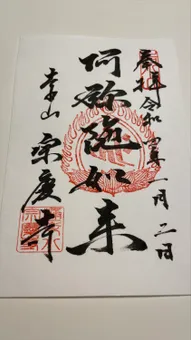 奉拝 令和 年 一月 二日
阿弥陀如来
宗慶寺